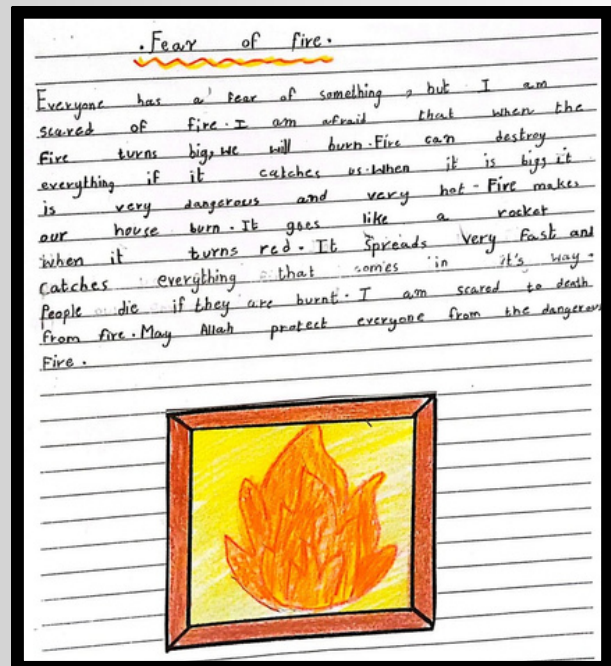 . Fear of fire .
Everyone has a fear of something, but I am
scared of fire. I am afraid that when the
fire turns big, we will burn. Fire can destroy
everything if it catches us. When it is big, it
is very dangerous and very hot. Fire makes
our house burn. It goes like a rocket
when it turns red. It spreads very fast and
catches everything that comes in it's way.
People die if they are burnt. I am scared to death
from fire. May Allah protect everyone from the dangerous
Fire.